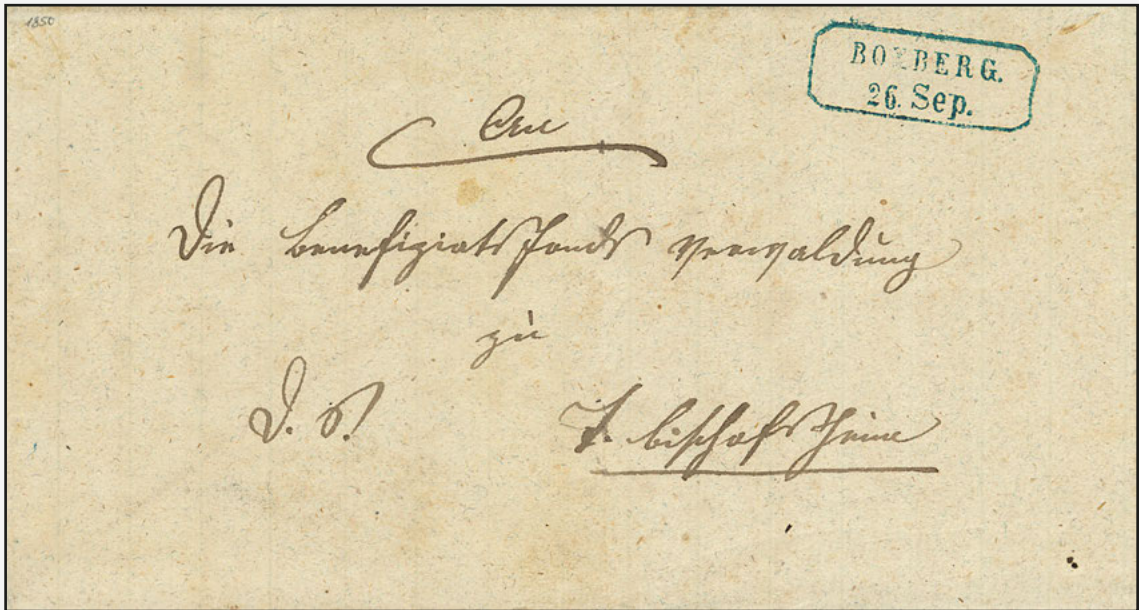 1850
BOXBERG.
26. Sep.
An
Die Benefiziatsfonds Verwaldung
zu
D. S. T. Bischofsheim